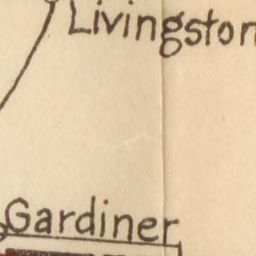 Livingston
Gardiner